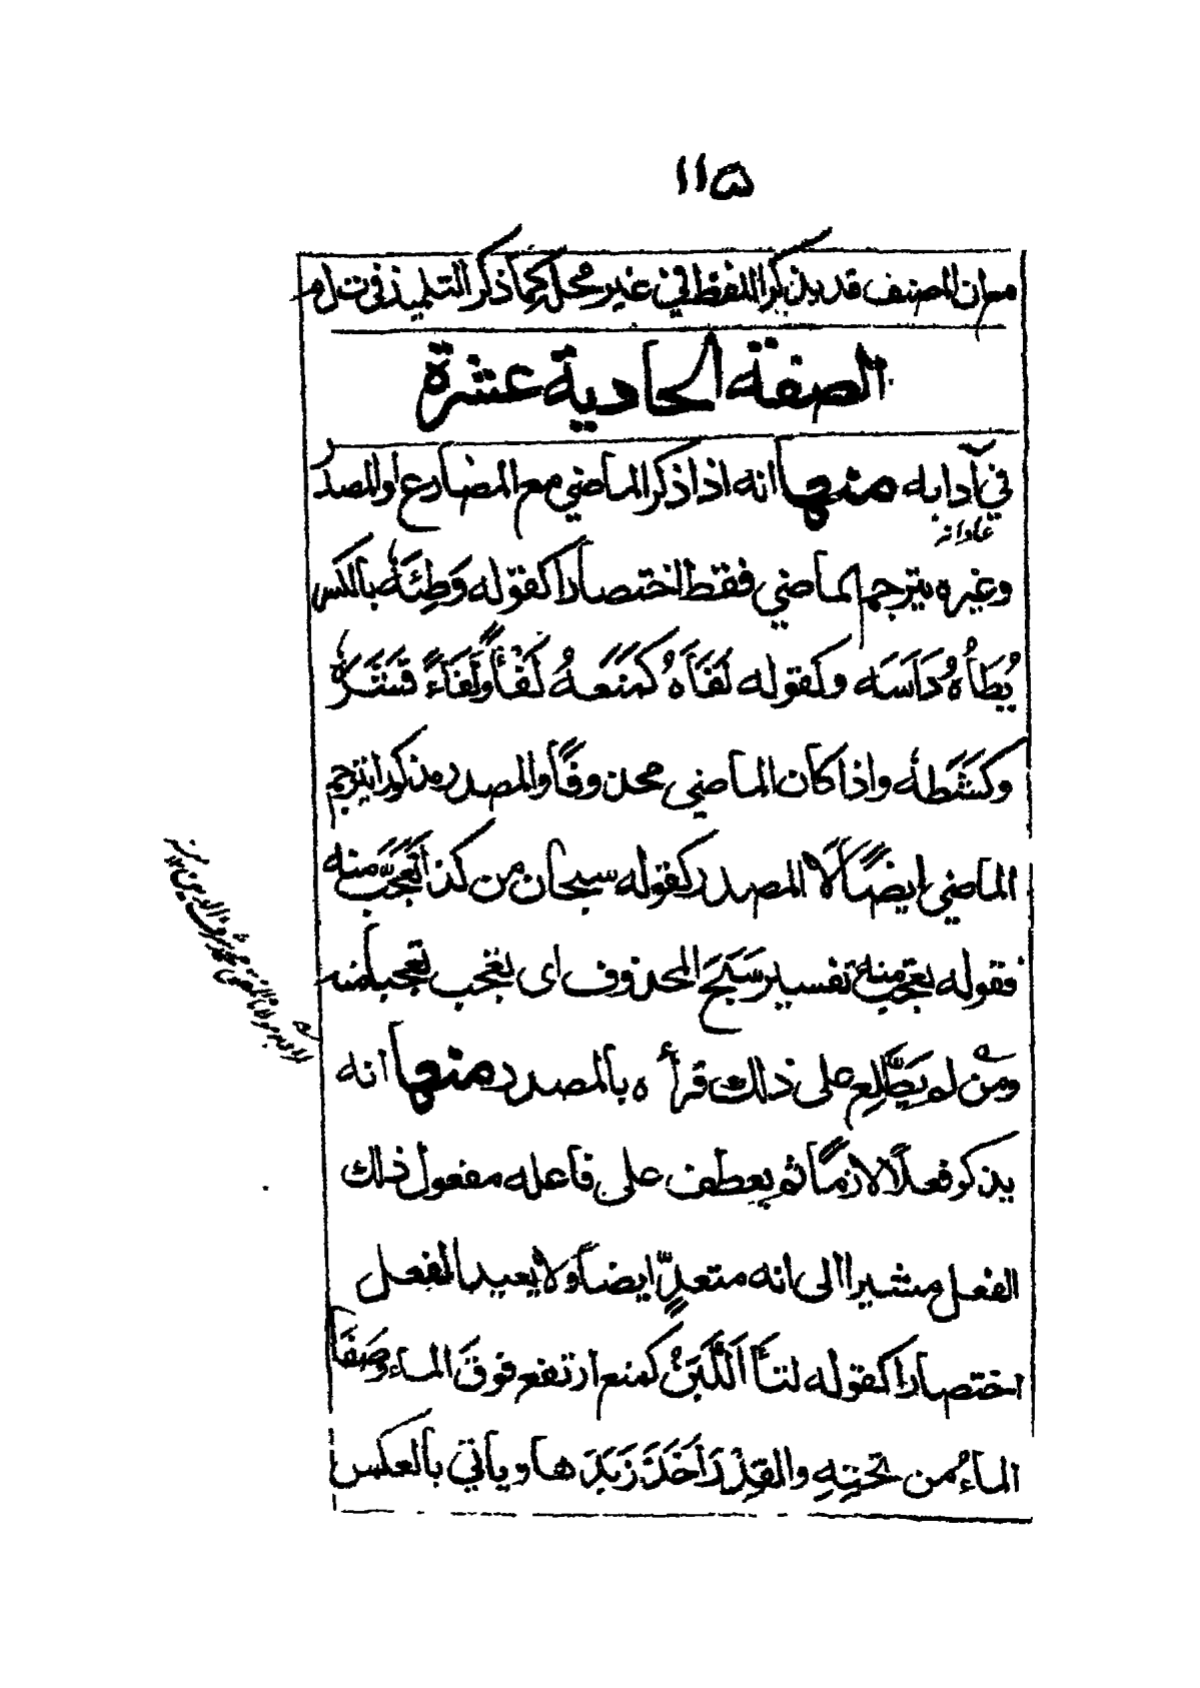 ١١۵
مع ان المصنف قد يذكر اللفظ في غير محل كما ذكر التلميذ في ت ل م
الصفة الحادية عشرة
في آدابه منها انه اذا ذكر الماضي مع المضارع او المصدر
عاداته
وغيره يترجم الماضي فقط اختصارا كقوله وَطِئَهُ بالكسر
يَطَأُهُ دَاسَه وكقوله لَفَأَهُ كَمَنَعَهُ لَفْأً ولَفَاءً قَشَرَهُ
وكَشَطَهُ واذا كان الماضي محذوفًا والمصدر مذكورا يترجم
الماضي ايضًا لَا المصدر كقوله سبحان من كذا تَعَجُّبٌ منه
فقوله تعجب منه تفسير سَبَّحَ المحذوف اى تعجب تعجبا منه
ومَنْ لم يَطَّلِع على ذلك قرأه بالمصدر منها انه
يذكر فعلًا لازمًا ثم يعطف على فاعله مفعول ذلك
الفعل مشيرا الى انه متعدٍّ ايضاً ولا يعيد الفعل
اختصارا كقوله لثَأَ اللَّبَنُ كمنع ارتفع فوقَ الماءِ وصَفَا
الماءُ من تحتِهِ والقِدْرَ اَخَذَ زَبَدَ ها وياتي بالعكس